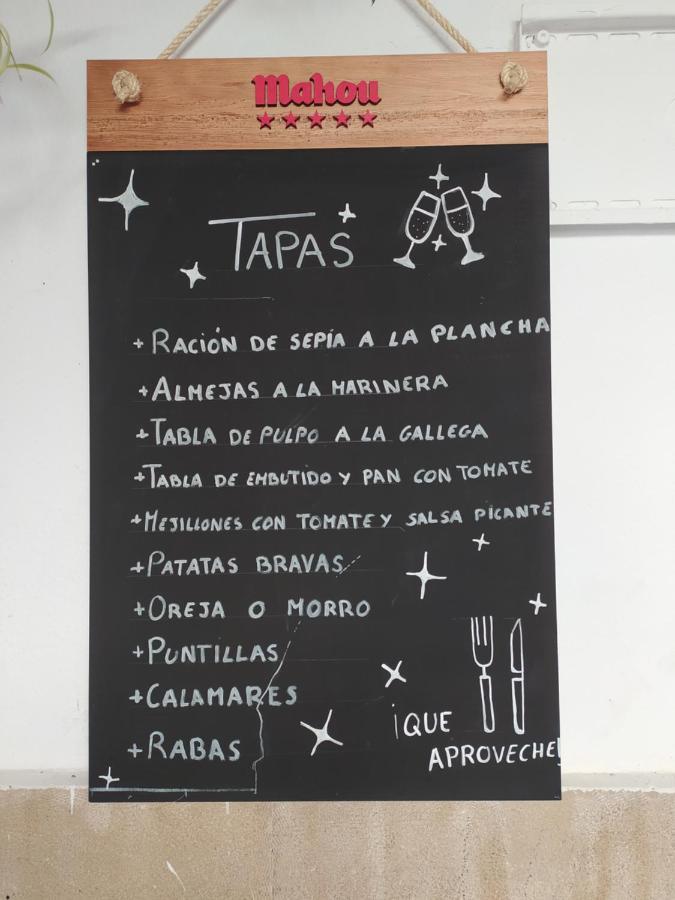 Mahou
TAPAS
+ RACIÓN DE SEPÍA A LA PLANCHA
+ ALMEJAS A LA MARINERA
+ TABLA DE PULPO A LA GALLEGA
+ TABLA DE EMBUTIDO Y PAN CON TOMATE
+ MEJILLONES CON TOMATE Y SALSA PICANTE
+ PATATAS BRAVAS
+ OREJA O MORRO
+ PUNTILLAS
+ CALAMARES
+ RABAS
¡QUE
APROVECHE!